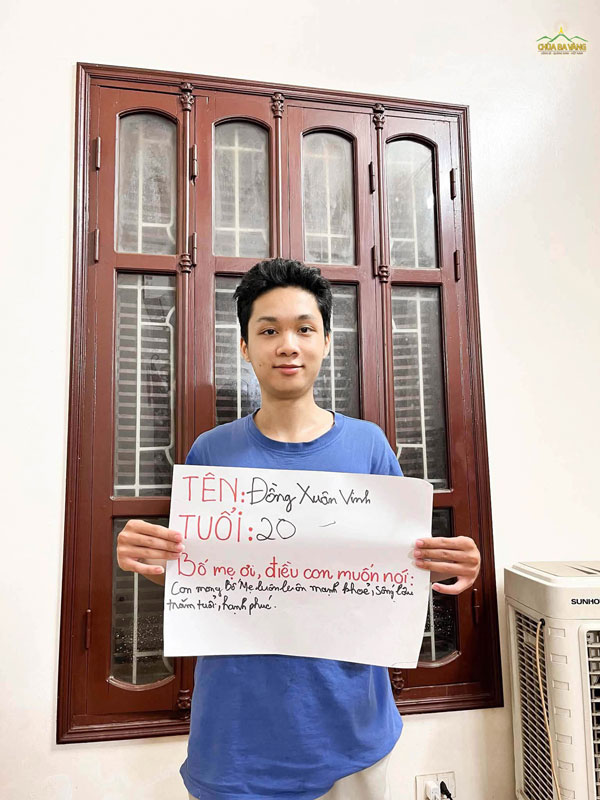 CHÙA BA VÀNG
TÊN: Đồng Xuân Vinh
TUỔI: 20
Bố mẹ ơi, điều con muốn nói:
Con mong Bố Mẹ luôn luôn mạnh khoẻ, sống lâu
trăm tuổi, hạnh phúc.
SUNHO